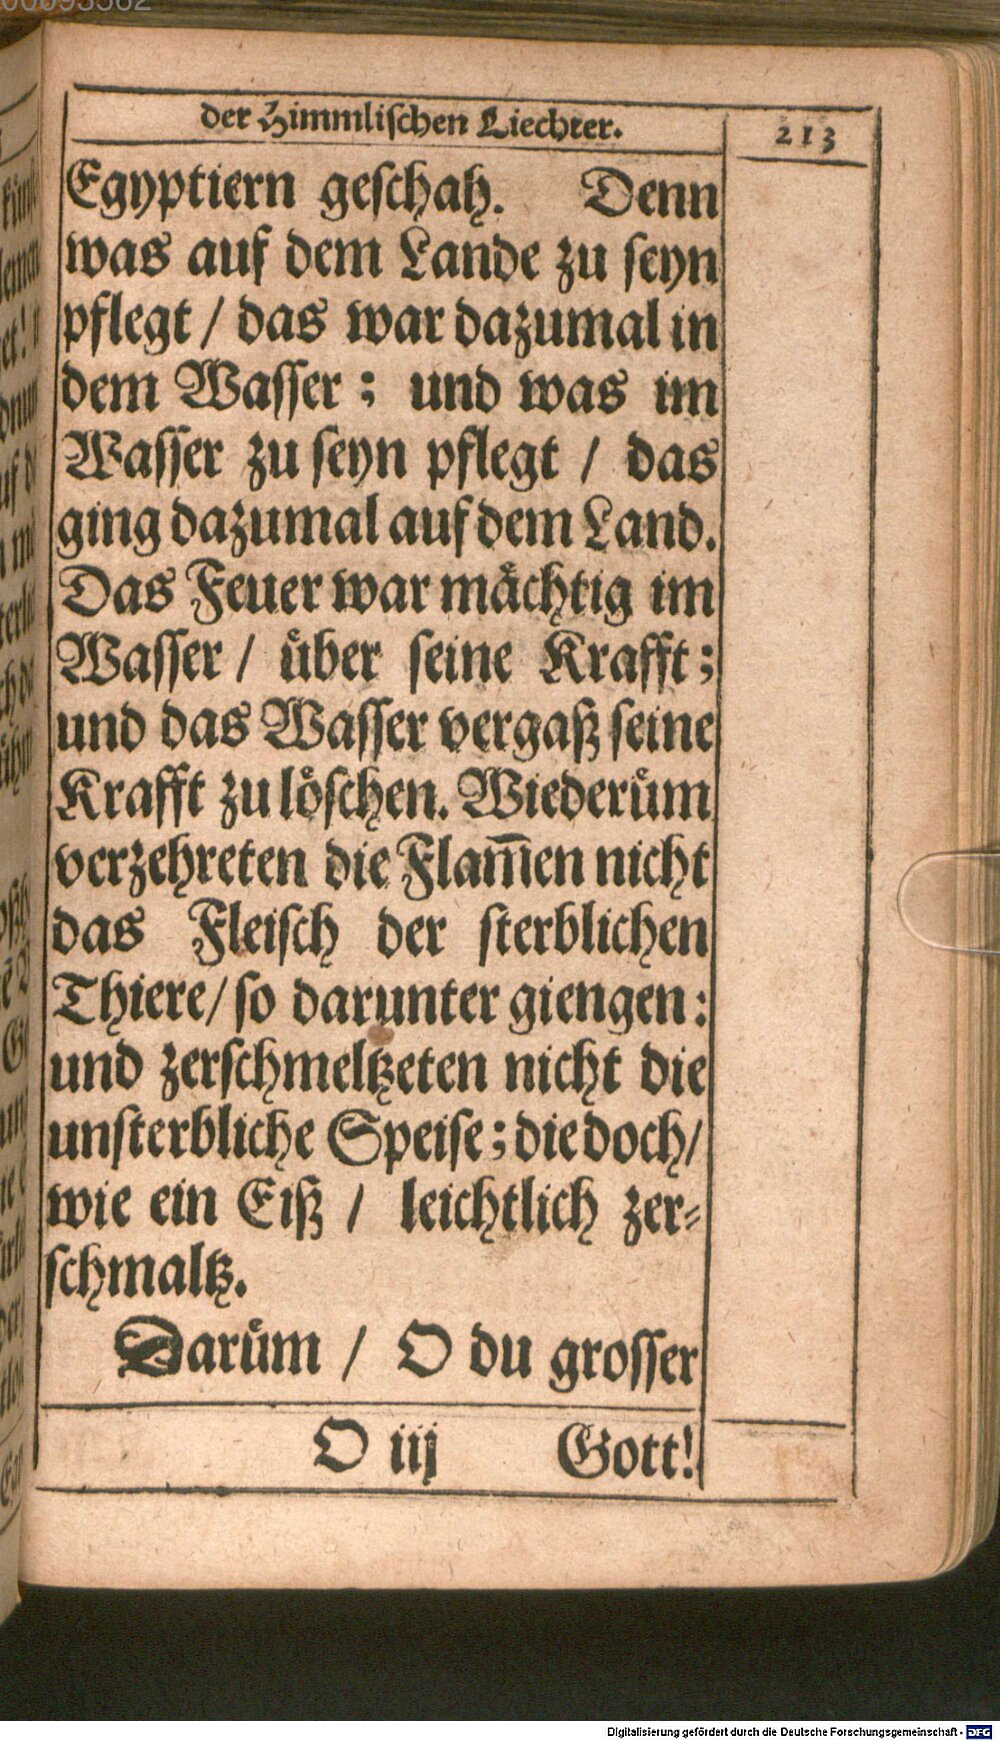 der Himmlischen Liechter.
213
Egyptiern geschah. Denn
was auf dem Lande zu seyn
pflegt / das war dazumal in
dem Wasser ; und was im
Wasser zu seyn pflegt / das
ging dazumal auf dem Land.
Das Feuer war mächtig im
Wasser / über seine Krafft ;
und das Wasser vergaß seine
Krafft zu löschen. Wiederüm
verzehreten die Flam̄en nicht
das Fleisch der sterblichen
Thiere / so darunter giengen :
und zerschmeltzeten nicht die
unsterbliche Speise ; die doch /
wie ein Eiß / leichtlich zer-
schmaltz.
Darüm / O du grosser
O iij Gott!
Digitalisierung gefördert durch die Deutsche Forschungsgemeinschaft - DFG